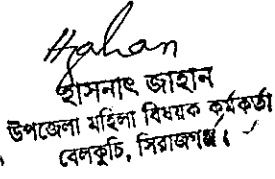 হাসনাৎ জাহান
উপজেলা মহিলা বিষয়ক কর্মকর্তা
বেলকুচি, সিরাজগঞ্জ।